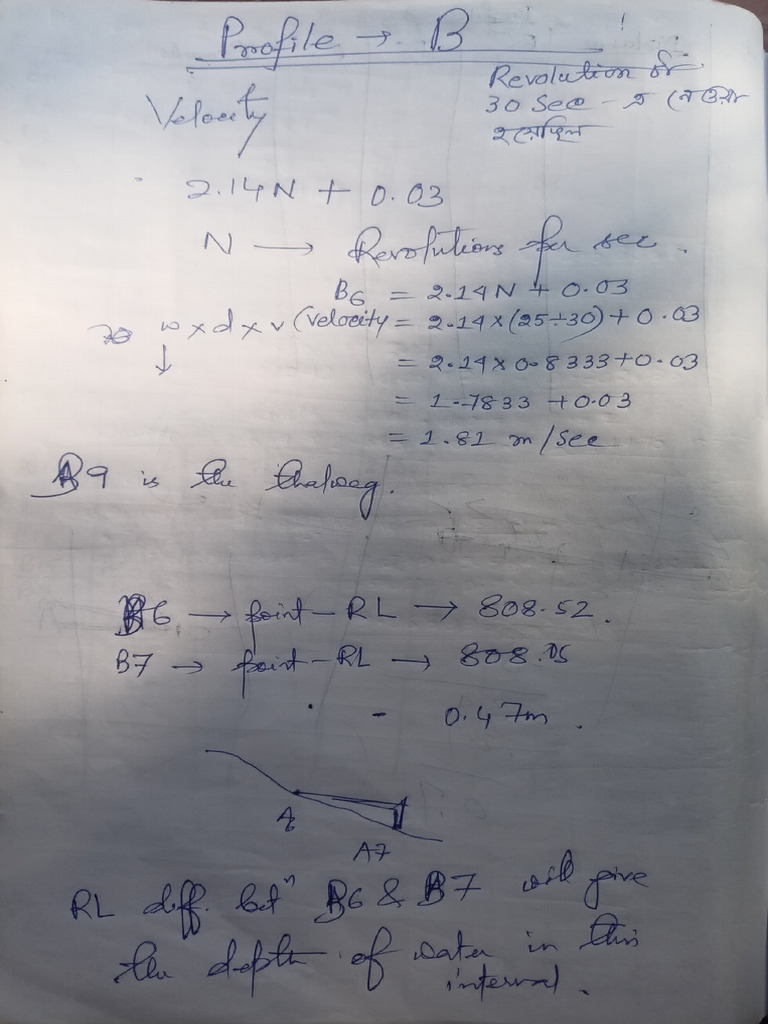 Profile → B
Velocity
Revolution
30 Sec - এ নেওয়া
হয়েছিল
2.14N + 0.03
N → Revolutions per sec.
B6 = 2.14N + 0.03
w x d x v (velocity = 2.14 x (25÷30) + 0.03
↓
= 2.14 x 0.8333 + 0.03
= 1.7833 + 0.03
= 1.81 m/sec
B9 is the thalweg.
B6 → point - RL → 808.52.
B7 → point - RL → 808.05
- 0.47m.
A7
RL diff. betⁿ B6 & B7 will give
the depth of water in this
interval.